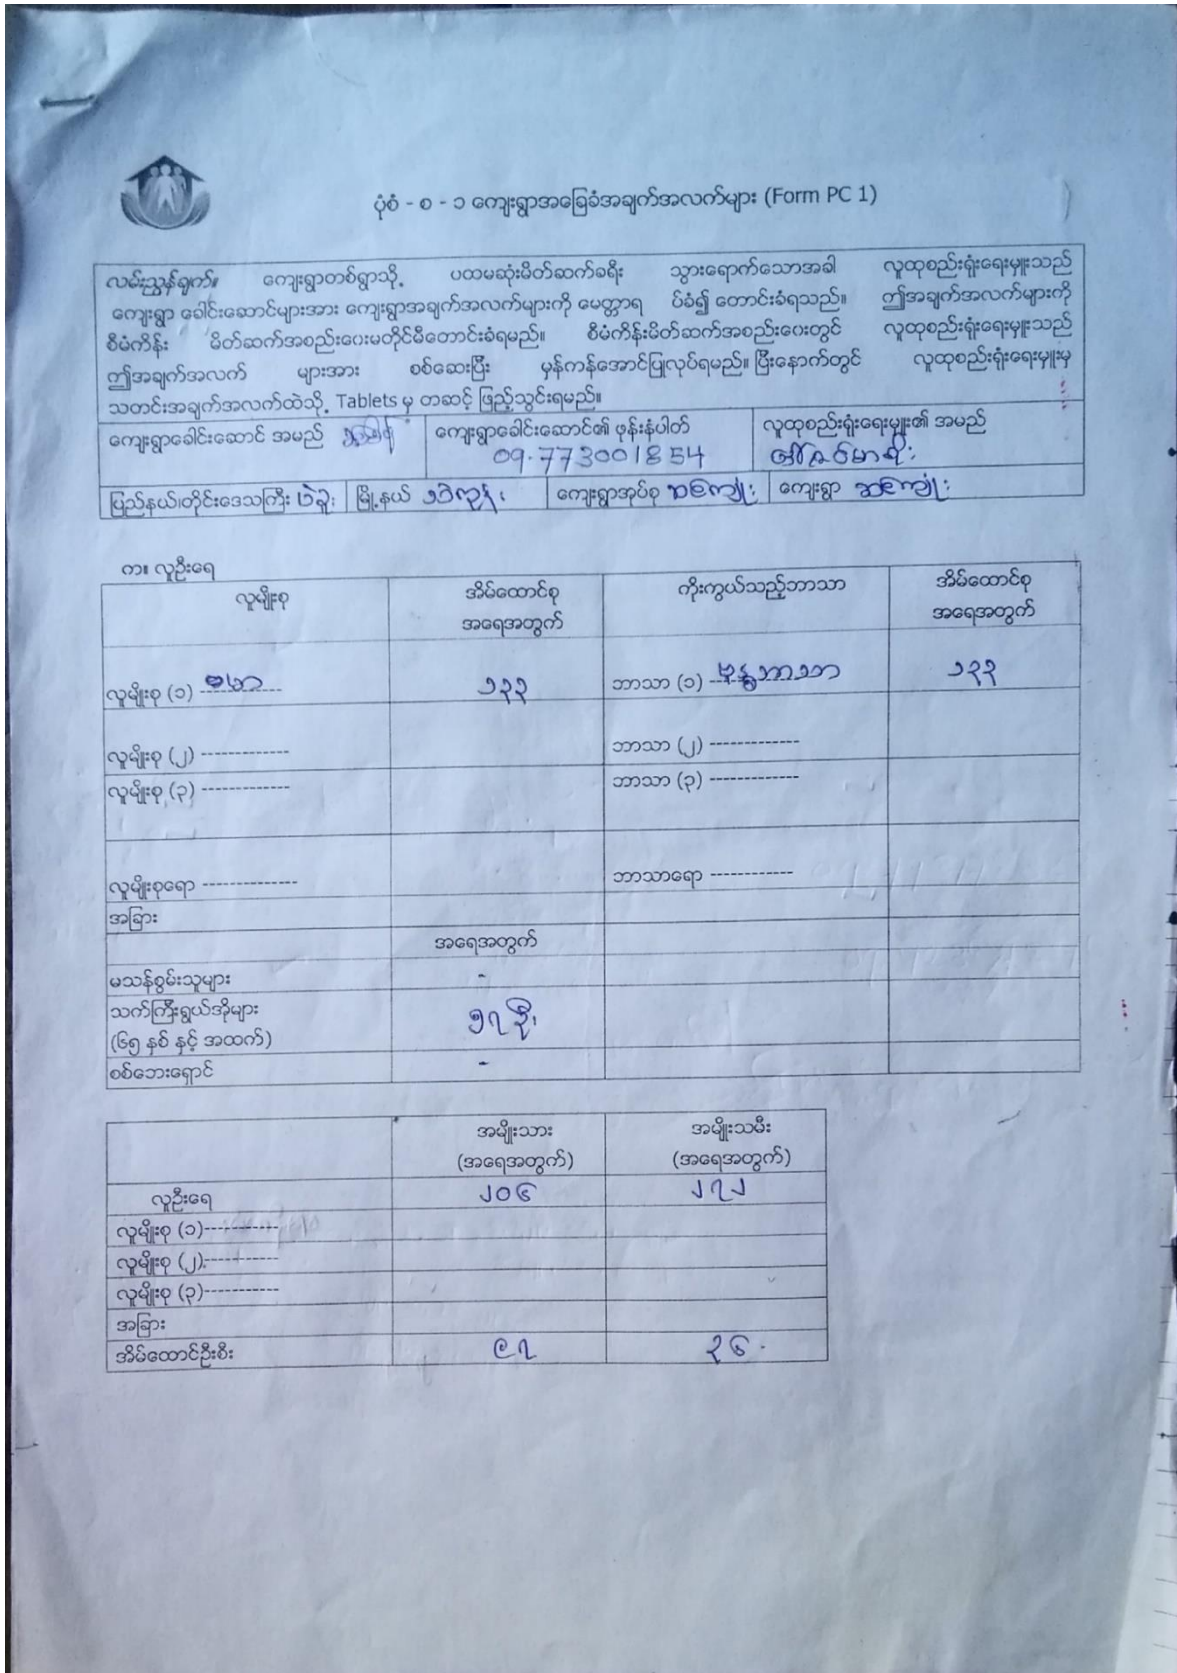 ပုံစံ - စ - ၁ ကျေးရွာအခြေခံအချက်အလက်များ (Form PC 1)
လမ်းညွှန်ချက်။ ကျေးရွာတစ်ရွာသို့ ပထမဆုံးမိတ်ဆက်ခရီး သွားရောက်သောအခါ လူထုစည်းရုံးရေးမှူးသည်
ကျေးရွာ ခေါင်းဆောင်များအား ကျေးရွာအချက်အလက်များကို မေတ္တာရ ပ်ခံ၍ တောင်းခံရသည်။ ဤအချက်အလက်များကို
စီမံကိန်း မိတ်ဆက်အစည်းဝေးမတိုင်မီတောင်းခံရမည်။ စီမံကိန်းမိတ်ဆက်အစည်းဝေးတွင် လူထုစည်းရုံးရေးမှူးသည်
ဤအချက်အလက် များအား စစ်ဆေးပြီး မှန်ကန်အောင်ပြုလုပ်ရမည်။ ပြီးနောက်တွင် လူထုစည်းရုံးရေးမှူးမှ
သတင်းအချက်အလက်ထဲသို့ Tablets မှ တဆင့် ဖြည့်သွင်းရမည်။
ကျေးရွာခေါင်းဆောင် အမည် ကျေးရွာခေါင်းဆောင်၏ ဖုန်းနံပါတ် လူထုစည်းရုံးရေးမှူး၏ အမည်
09.773001854 ဒေါ်ဇင်မာစိုး
ပြည်နယ်/တိုင်းဒေသကြီး ပဲခူး မြို့နယ် ဒိုက်ဦး ကျေးရွာအုပ်စု ကျေးရွာ
က။ လူဦးရေ
လူမျိုးစု အိမ်ထောင်စု ကိုးကွယ်သည့်ဘာသာ အိမ်ထောင်စု
အရေအတွက် အရေအတွက်
လူမျိုးစု (၁) ဗမာ ၁၃၃ ဘာသာ (၁) ဗုဒ္ဓဘာသာ ၁၃၃
လူမျိုးစု (၂) ------------- ဘာသာ (၂) -------------
လူမျိုးစု (၃) ------------- ဘာသာ (၃) -------------
လူမျိုးစုရော -------------- ဘာသာရော ------------
အခြား
အရေအတွက်
မသန်စွမ်းသူများ -
သက်ကြီးရွယ်အိုများ ၅၇ ဦး
(၆၅ နှစ် နှင့် အထက်)
စစ်ဘေးရှောင် -
အမျိုးသား အမျိုးသမီး
(အရေအတွက်) (အရေအတွက်)
လူဦးရေ ၂၀၆ ၂၇၂
လူမျိုးစု (၁)-----------
လူမျိုးစု (၂)-----------
လူမျိုးစု (၃)-----------
အခြား
အိမ်ထောင်ဦးစီး ၉၇ ၃၆